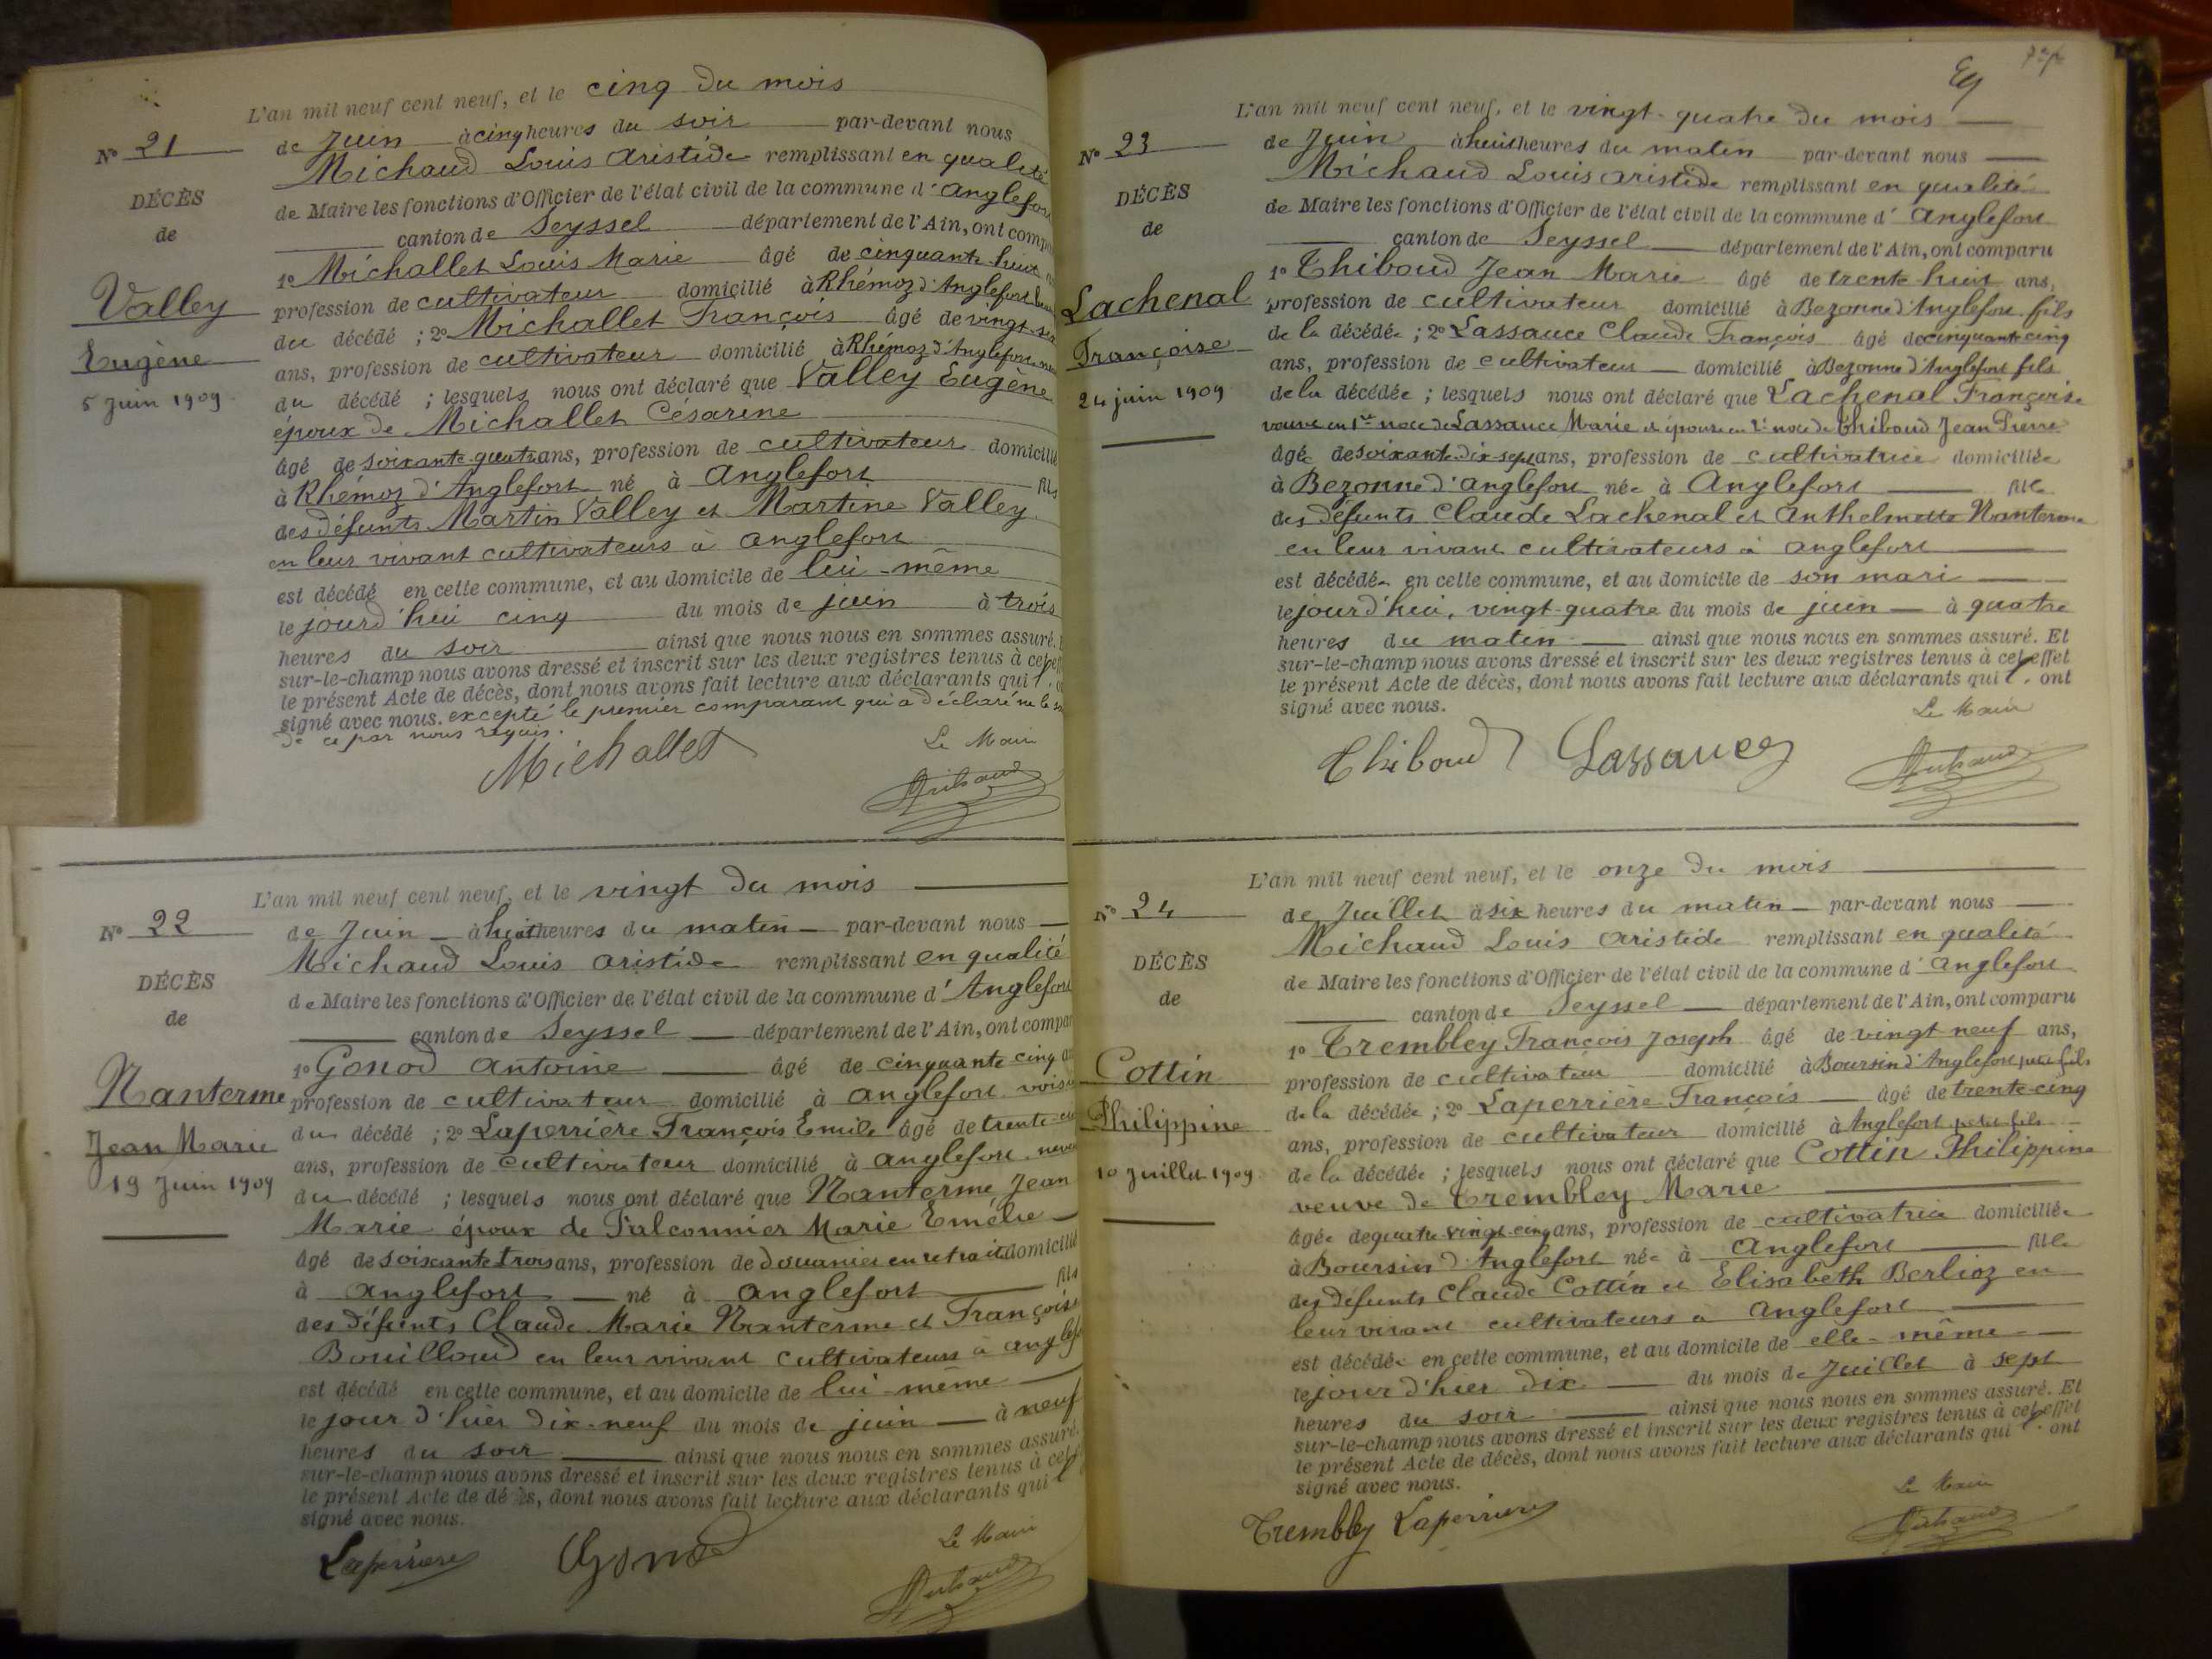 L'an mil neuf cent neuf, et le cinq du mois
N° 21
de Juin à cinq heures du soir par-devant nous
Michaud Louis Aristide remplissant en qualité
DÉCÈS
de Maire les fonctions d'Officier de l'état civil de la commune d'Anglefort
de
canton de Seyssel département de l'Ain, ont comparu
1° Michallet Louis Marie âgé de cinquante-huit
Valley
profession de cultivateur domicilié à Rhémoz d'Anglefort
du décédé ; 2° Michallet François âgé de vingt
Eugène
ans, profession de cultivateur domicilié à Rhémoz d'Anglefort
5 Juin 1909
du décédé ; lesquels nous ont déclaré que Valley Eugène
époux de Michallet Césarine
âgé de soixante-quatre ans, profession de cultivateur domicilié
à Rhémoz d'Anglefort né à Anglefort fils
des défunts Martin Valley et Martine Valley
en leur vivant cultivateurs à Anglefort
est décédé en cette commune, et au domicile de lui-même
le jourd'hui cinq du mois de juin à trois
heures du soir ainsi que nous nous en sommes assuré.
sur-le-champ nous avons dressé et inscrit sur les deux registres tenus à cet
le présent Acte de décès, dont nous avons fait lecture aux déclarants qui l'
signé avec nous. excepté le premier comparant qui a déclaré ne le
de ce par nous requis.
Michallet
Le Maire
Michaud
L'an mil neuf cent neuf, et le vingt du mois
N° 22
de Juin à huit heures du matin par-devant nous
Michaud Louis Aristide remplissant en qualité
DÉCÈS
de Maire les fonctions d'Officier de l'état civil de la commune d'Anglefort
de
canton de Seyssel département de l'Ain, ont compar
1° Gonod Antoine âgé de cinquante cinq
Nanterme
profession de cultivateur domicilié à Anglefort voisin
du décédé ; 2° Laperrière François Emile âgé de trente
Jean Marie
ans, profession de cultivateur domicilié à Anglefort neveu
19 Juin 1909
du décédé ; lesquels nous ont déclaré que Nanterme Jean
Marie époux de Falconnier Marie Emélie
âgé de soixante trois ans, profession de douanier en retraite domicilié
à Anglefort né à Anglefort fils
des défunts Claude Marie Nanterme et Françoise
Bouilloud en leur vivant cultivateurs à Anglef
est décédé en cette commune, et au domicile de lui-même
le jour d'hier dix-neuf du mois de juin à neuf
heures du soir ainsi que nous nous en sommes assuré.
sur-le-champ nous avons dressé et inscrit sur les deux registres tenus à cet
le présent Acte de décès, dont nous avons fait lecture aux déclarants qui l
signé avec nous.
Laperriere Gonod
Le Maire
Michaud
Eg
L'an mil neuf cent neuf, et le vingt-quatre du mois
N° 23
de Juin à huit heures du matin par-devant nous
Michaud Louis Aristide remplissant en qualité
DÉCÈS
de Maire les fonctions d'Officier de l'état civil de la commune d'Anglefort
de
canton de Seyssel département de l'Ain, ont comparu
1° Thiboud Jean Marie âgé de trente-huit ans,
Lachenal
profession de cultivateur domicilié à Bezonne d'Anglefort fils
de la décédée ; 2° Lassauce Claude François âgé de cinquante cinq
Françoise
ans, profession de cultivateur domicilié à Bezonne d'Anglefort fils
24 juin 1909
de la décédée ; lesquels nous ont déclaré que Lachenal Françoise
veuve en 1re noce de Lassauce Marie et épouse en 2e noce de Thiboud Jean Pierre
âgée de soixante-dix-sept ans, profession de cultivatrice domiciliée
à Bezonne d'Anglefort née à Anglefort fille
des défunts Claude Lachenal et Anthelmette Nanterme
en leur vivant cultivateurs à Anglefort
est décédée en cette commune, et au domicile de son mari
le jourd'hui, vingt-quatre du mois de juin à quatre
heures du matin ainsi que nous nous en sommes assuré. Et
sur-le-champ nous avons dressé et inscrit sur les deux registres tenus à cet effet
le présent Acte de décès, dont nous avons fait lecture aux déclarants qui l' ont
signé avec nous.
Thiboud Lassauce
Le Maire
Michaud
L'an mil neuf cent neuf, et le onze du mois
N° 24
de Juillet à six heures du matin par-devant nous
Michaud Louis Aristide remplissant en qualité
DÉCÈS
de Maire les fonctions d'Officier de l'état civil de la commune d'Anglefort
de
canton de Seyssel département de l'Ain, ont comparu
1° Trembley François Joseph âgé de vingt neuf ans,
Cottin
profession de cultivateur domicilié à Boursin d'Anglefort petit fils
de la décédée ; 2° Laperrière François âgé de trente-cinq
Philippine
ans, profession de cultivateur domicilié à Anglefort petit fils
10 Juillet 1909
de la décédée ; lesquels nous ont déclaré que Cottin Philippine
veuve de Trembley Marie
âgée de quatre-vingt-cinq ans, profession de cultivatrice domiciliée
à Boursin d'Anglefort née à Anglefort fille
des défunts Claude Cottin et Elisabeth Berlioz en
leur vivant cultivateurs à Anglefort
est décédée en cette commune, et au domicile de elle-même
le jour d'hier dix du mois de Juillet à sept
heures du soir ainsi que nous nous en sommes assuré. Et
sur-le-champ nous avons dressé et inscrit sur les deux registres tenus à cet effet
le présent Acte de décès, dont nous avons fait lecture aux déclarants qui l' ont
signé avec nous.
Trembley Laperriere
Le Maire
Michaud